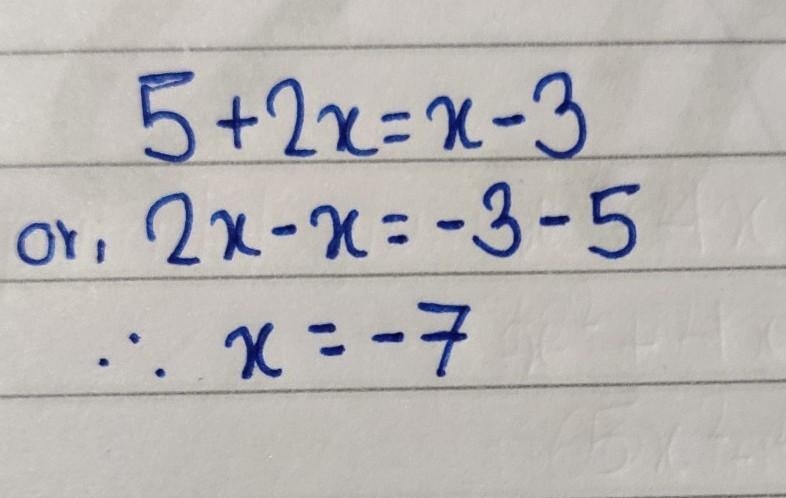 5+2x=x-3
or, 2x-x=-3-5
∴ x=-7